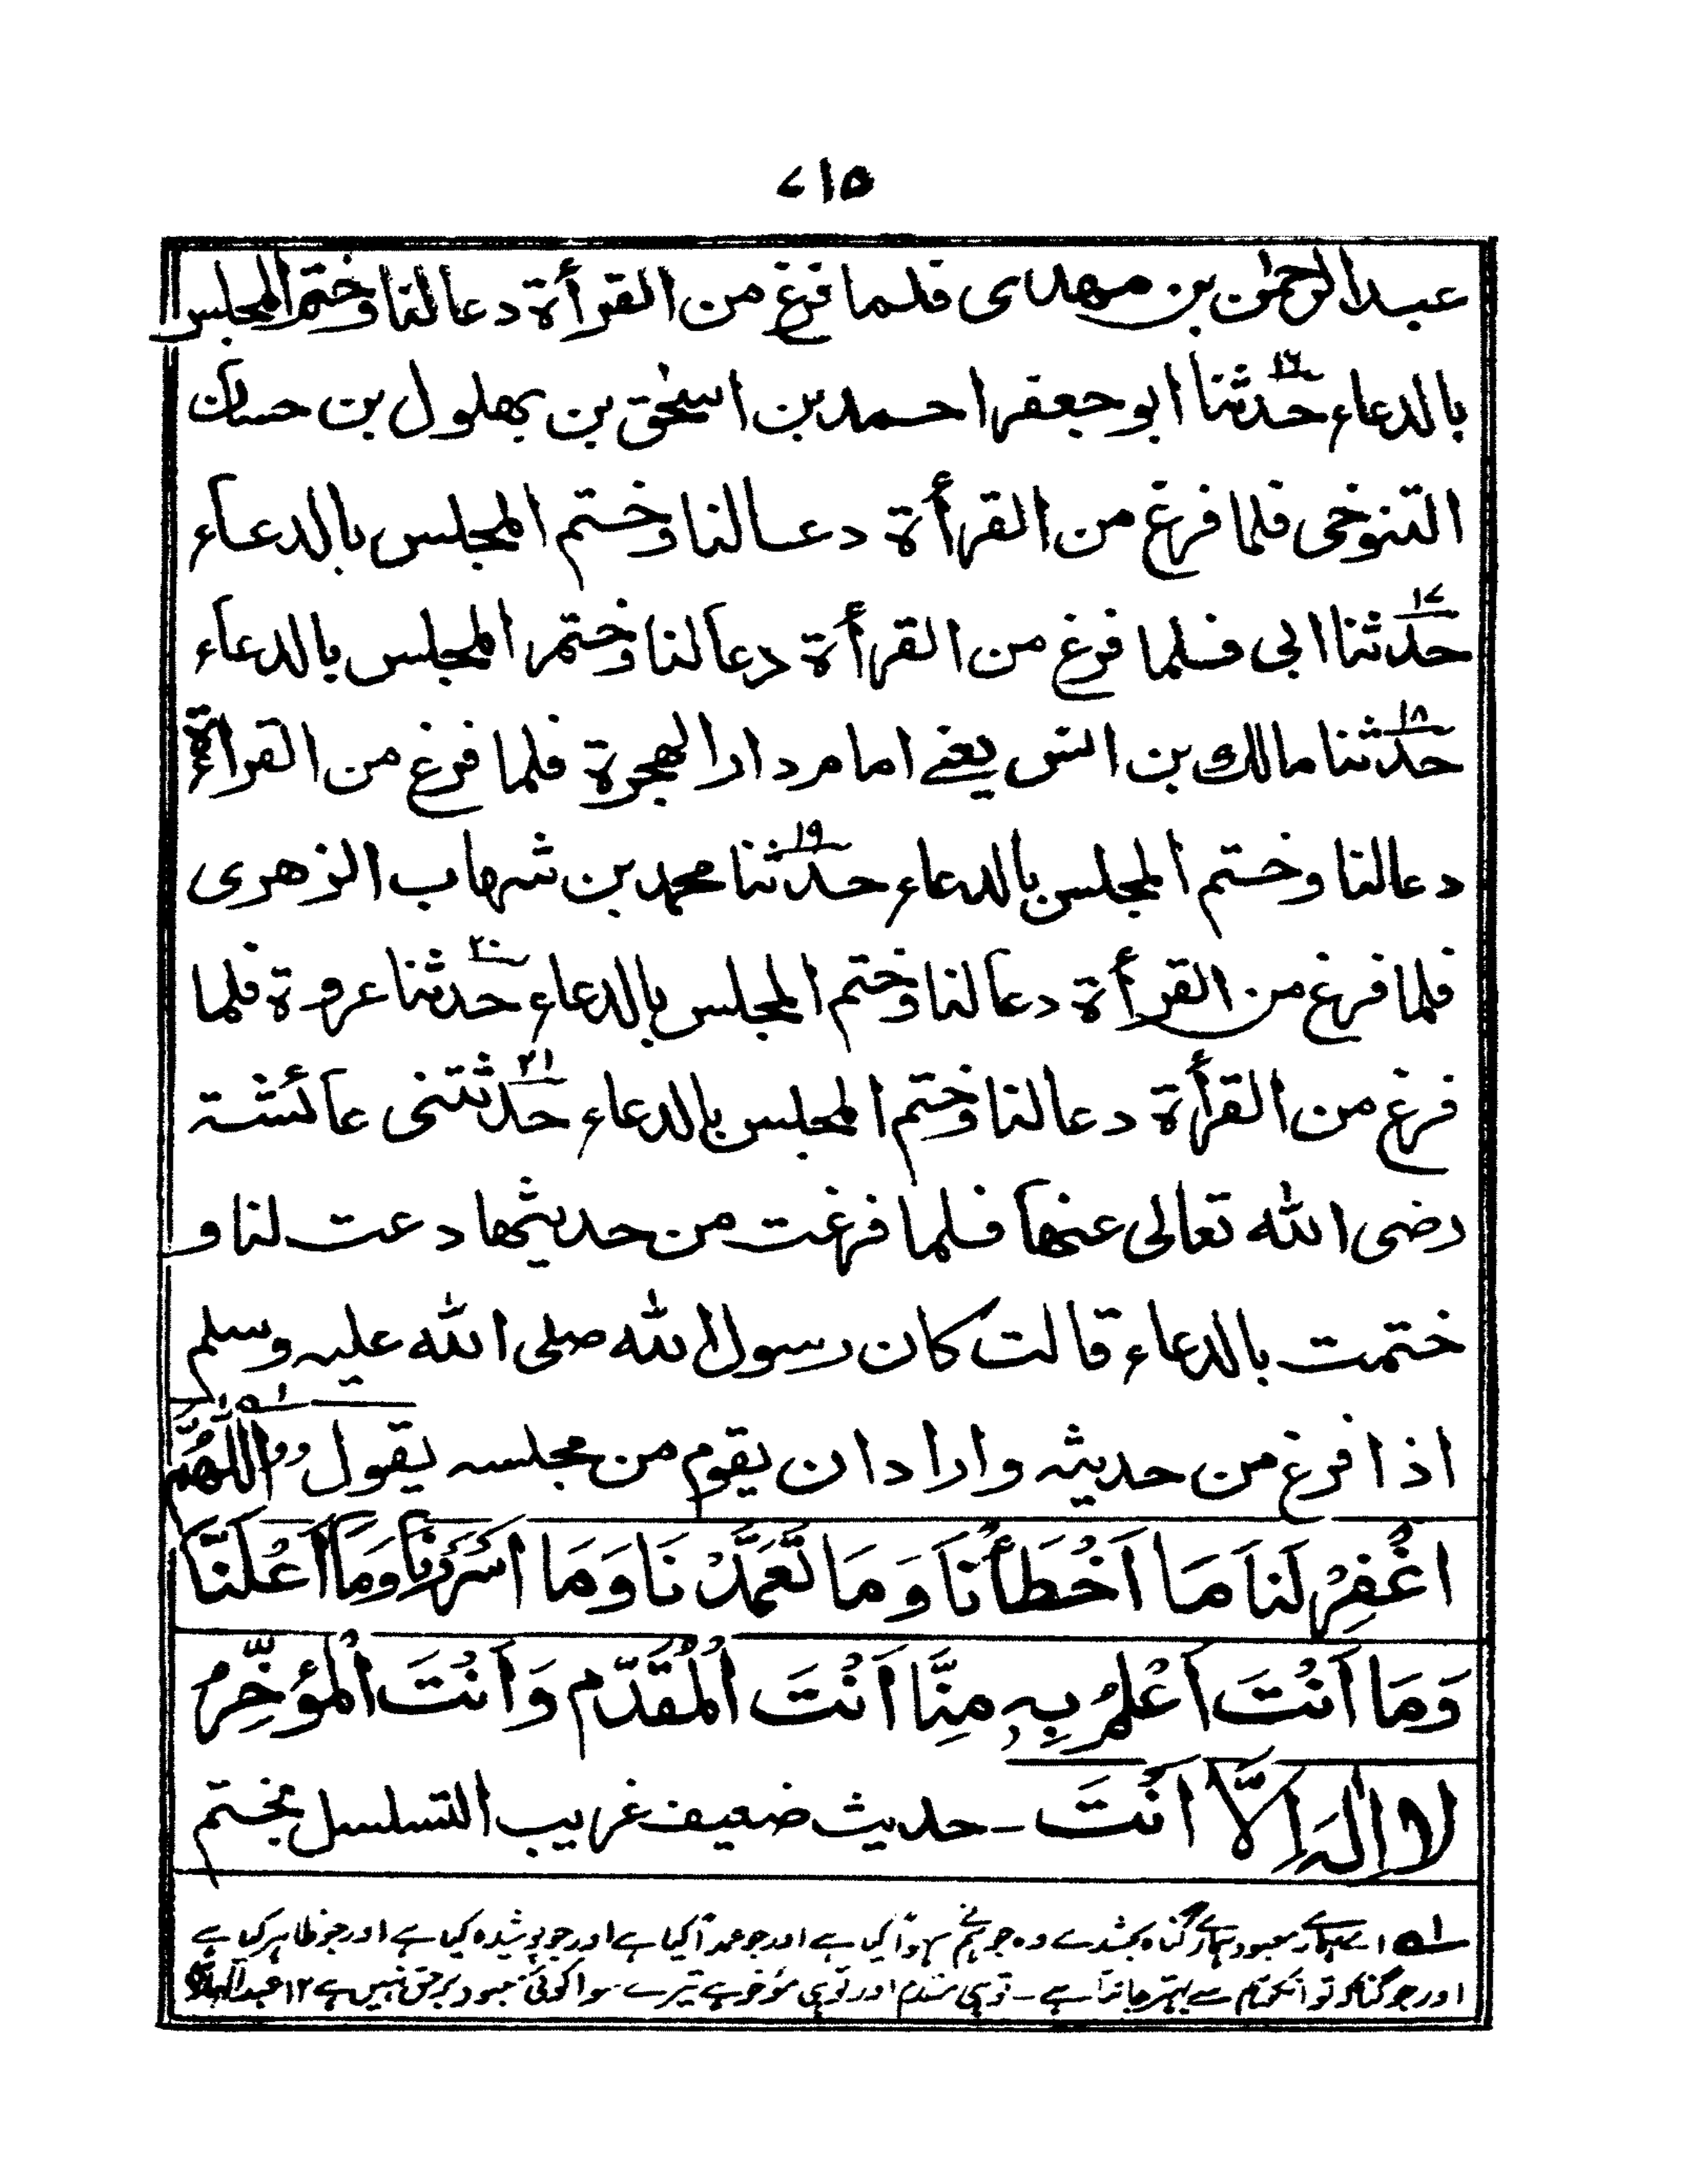 ۵۱۷
عبدالرحمٰن بن مهدی فلما فرغ من القرأة دعا لنا وختم المجلس
بالدعاء حدثنا ۱۶ ابو جعفر احمد بن اسحٰق بن بهلول بن حسان
التنوخی فلما فرغ من القرأة دعا لنا وختم المجلس بالدعاء
حدثنا ۱۷ ابی فلما فرغ من القرأة دعا لنا وختم المجلس بالدعاء
حدثنا ۱۸ مالك بن انس یعنے امام دار الهجرة فلما فرغ من القرأة
دعا لنا وختم المجلس بالدعاء حدثنا ۱۹ محمد بن شهاب الزهری
فلما فرغ من القرأة دعا لنا وختم المجلس بالدعاء حدثنا ۲۰ عروة فلما
فرغ من القرأة دعا لنا وختم المجلس بالدعاء حدثتنی ۲۱ عائشة
رضی الله تعالی عنها فلما فرغت من حدیثها دعت لنا و
ختمت بالدعاء قالت كان رسول الله صلی الله علیه وسلم
اذا فرغ من حدیثه واراد ان یقوم من مجلسه یقول اَللّٰهُمَّ ۱ه
اغْفِرْ لَنَا مَا اَخْطَأْنَا وَمَا تَعَمَّدْنَا وَمَا اَسْرَرْنَا وَمَا اَعْلَنَّا
وَمَا اَنْتَ اَعْلَمُ بِهٖ مِنَّا اَنْتَ الْمُقَدِّم وَاَنْتَ الْمُؤَخِّرُ
لَا اِلٰهَ اِلَّا اَنْتَ ۔ حدیث ضعیف غریب التسلسل بختم
۱ه اے ہمارے معبود ہمارے گناہ بخشدے وہ جو ہم نے سہواً کیا ہے اور جو عمداً کیا ہے اور جو پوشیدہ کیا ہے اور جو ظاہر کیا ہے
اور جو گناہ کو تو انکو ہم سے بہتر جانتا ہے ۔ تو ہی مقدم اور تو ہی مؤخر ہے تیرے سوا کوئی معبود برحق نہیں ہے ۱۲